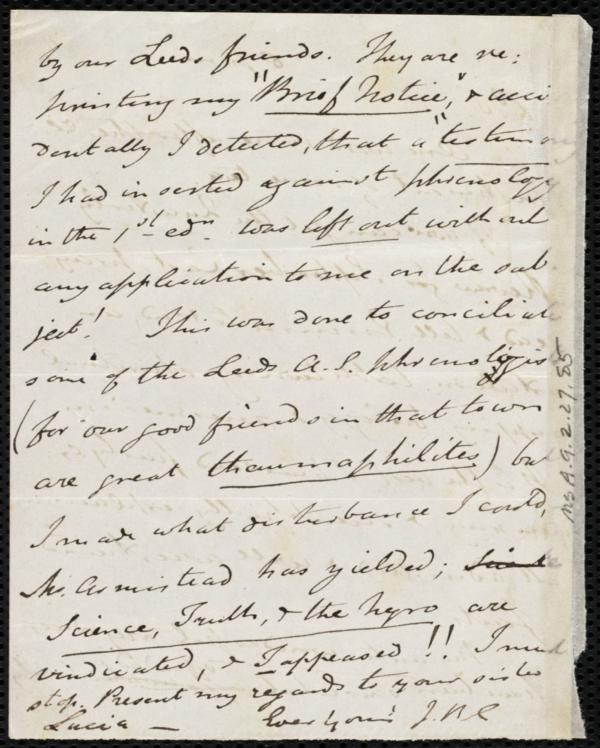 by our Leeds friends. They are re:
printing my "Brief Notice", & acci
dentally I detected, that a "testimony
I had inserted against phrenology
in the 1st edn. was left out without
any application to me on the sub
ject! This was done to conciliate
some of the Leeds A.S. phrenologists
(for our good friends in that town
are great thaumaphilites) but
I made what disturbance I could,
Mr. Armistead has yielded;
Science, Truth, & the Negro are
vindicated, & I appeased!! I must
stop. Present my regards to your sister
Lucia — Ever yours J.B.E
Ms A.9.2.27.85